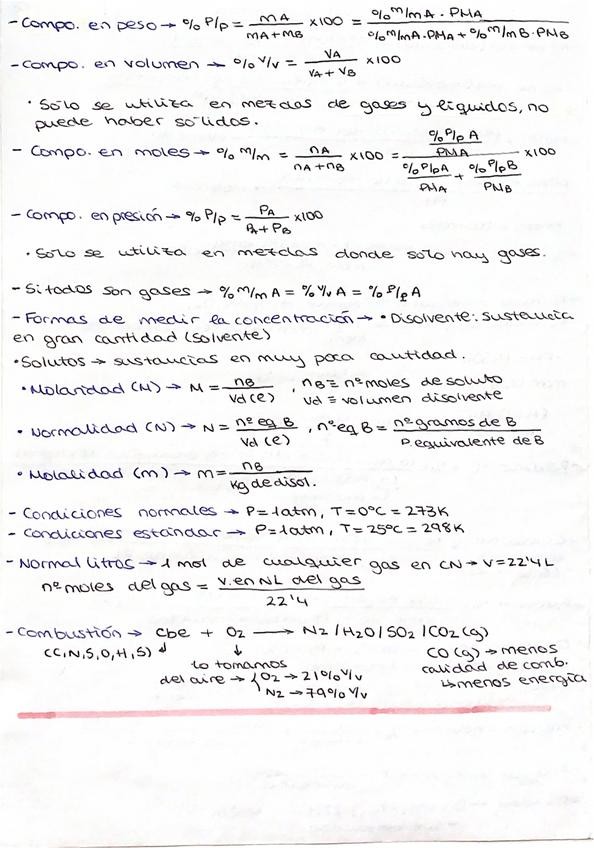 - Compo. en peso → % P/p = mA / (mA + mB) x100 = (% m/m A · PMA) / (% m/m A · PMA + % m/m B · PMB)
- Compo. en volumen → % V/v = VA / (VA + VB) x100
· Solo se utiliza en mezclas de gases y líquidos, no
puede haber sólidos.
- Compo. en moles → % m/m = nA / (nA + nB) x100 = (% P/p A / PMA) / (% P/p A / PMA + % P/p B / PMB) x100
- Compo. en presión → % P/p = PA / (PA + PB) x100
· Solo se utiliza en mezclas donde solo hay gases.
- Si todos son gases → % m/m A = % V/v A = % P/p A
- Formas de medir la concentración → · Disolvente: sustancia
en gran cantidad (solvente)
· Solutos → sustancias en muy poca cantidad.
· Molaridad (M) → M = nB / Vd (l) , nB ≡ nº moles de soluto
Vd ≡ volumen disolvente
· Normalidad (N) → N = nº eq B / Vd (l) , nº eq B = nº gramos de B / P. equivalente de B
· Molalidad (m) → m = nB / Kg de disol.
- Condiciones normales → P = 1 atm, T = 0ºC = 273K
- Condiciones estándar → P = 1 atm, T = 25ºC = 298K
- Normal litros → 1 mol de cualquier gas en CN → V = 22'4 L
nº moles del gas = V. en NL del gas / 22'4
- Combustión → Cbe + O2 ⟶ N2 / H2O / SO2 / CO2 (g)
(C, N, S, O, H, S) ↲ ↓ CO (g) → menos
lo tomamos calidad de comb.
del aire → { O2 → 21% V/v ↳ menos energía
N2 → 79% V/v